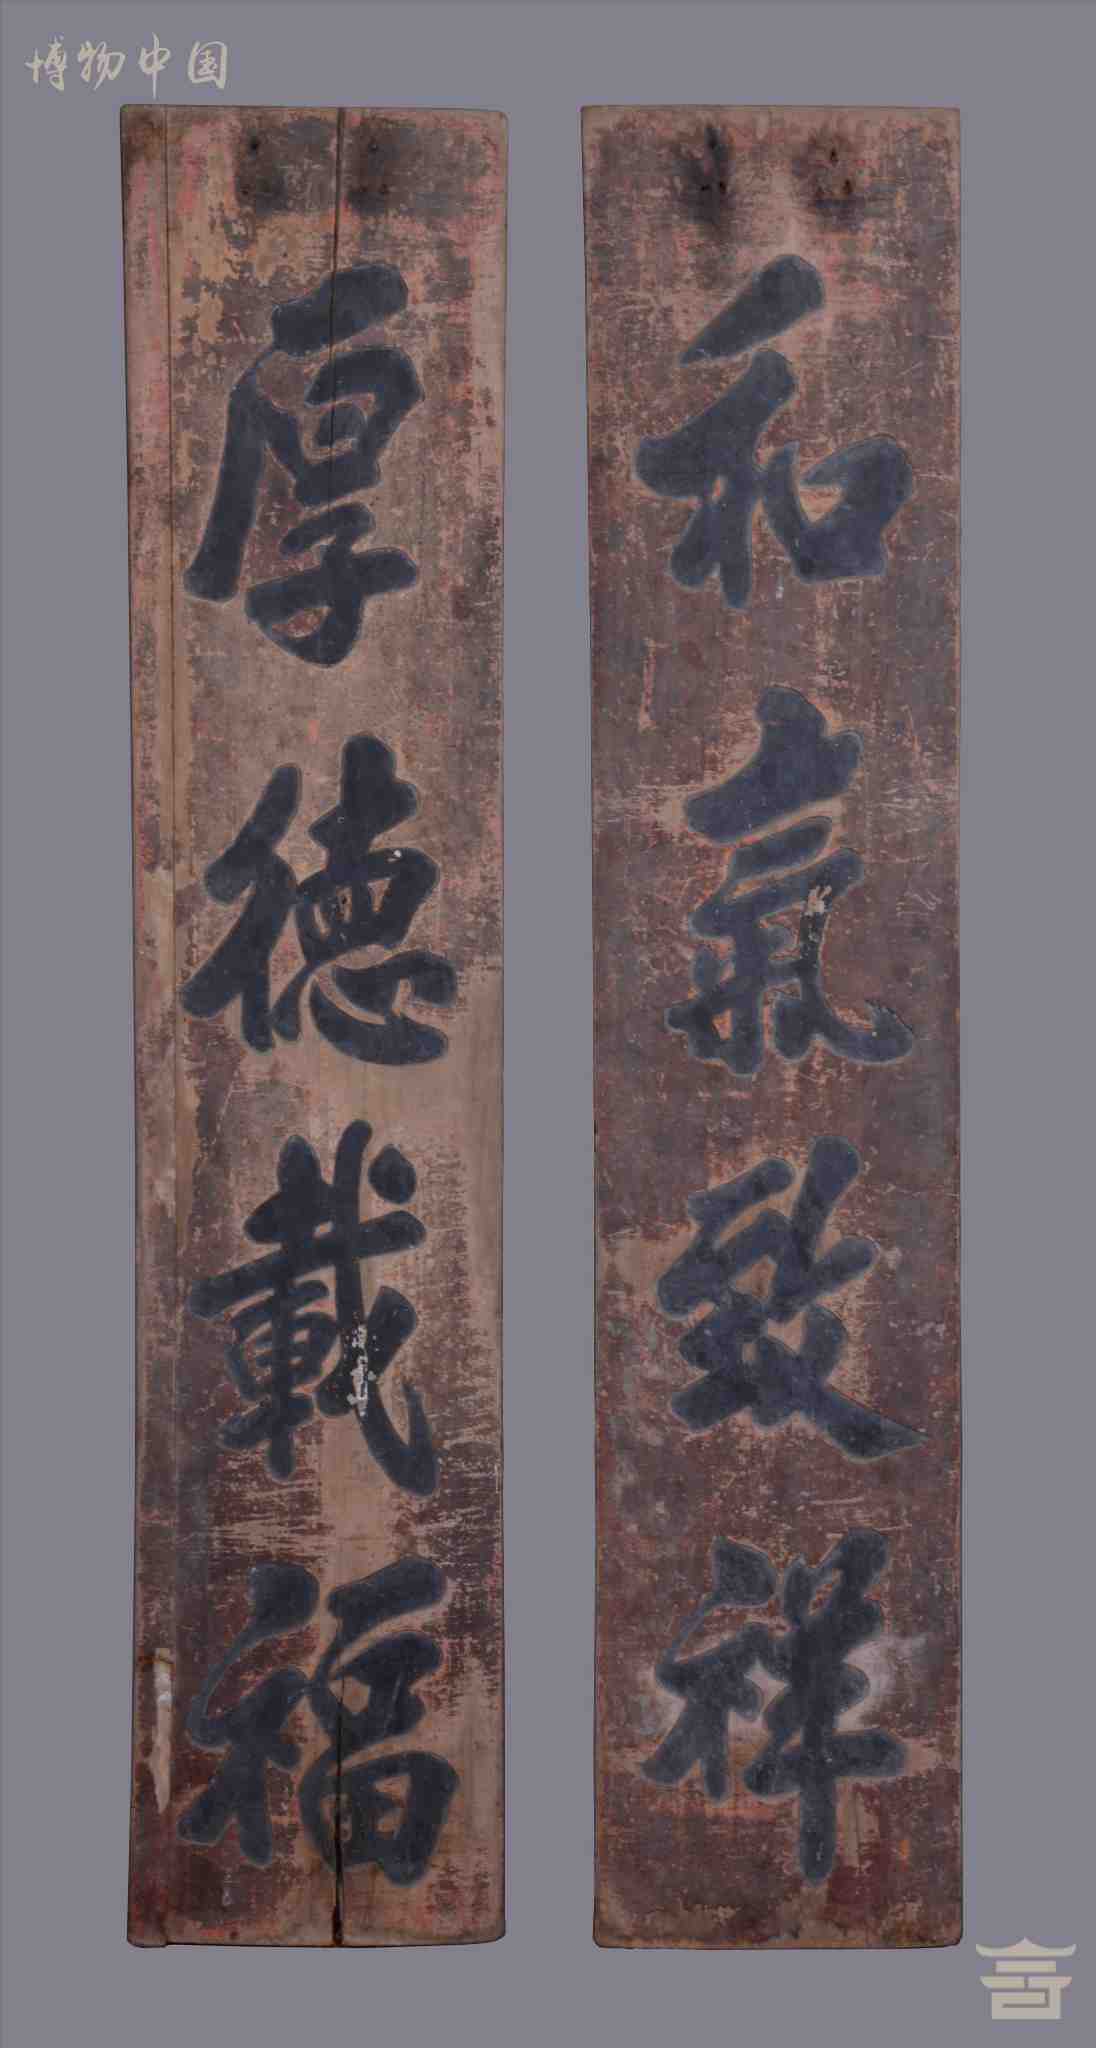 博物中国
和氣致祥
厚德載福